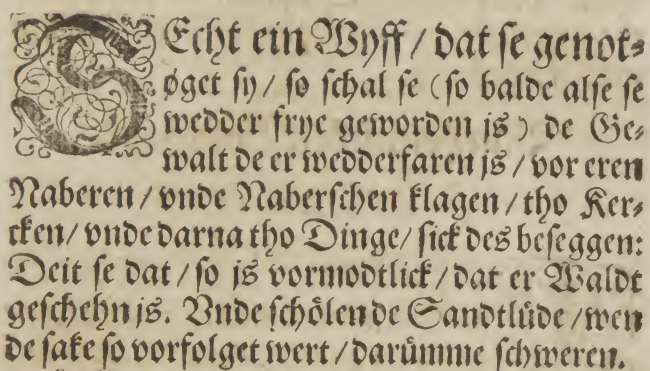 SEcht ein Wyff / dat se genot⸗
øget sy / so schal se (so balde alse se
wedder frye geworden is) de Ge⸗
walt de er wedderfaren is / vor eren
Naberen / vnde Naberschen klagen / tho Ker⸗
cken / vnde darna tho Dinge / sick des beseggen:
Deit se dat / so is vormodtlick / dat er Waldt
geschehn is. Vnde schölen de Sandtlüde / wen
de sake so vorfolget wert / darümme schweren.